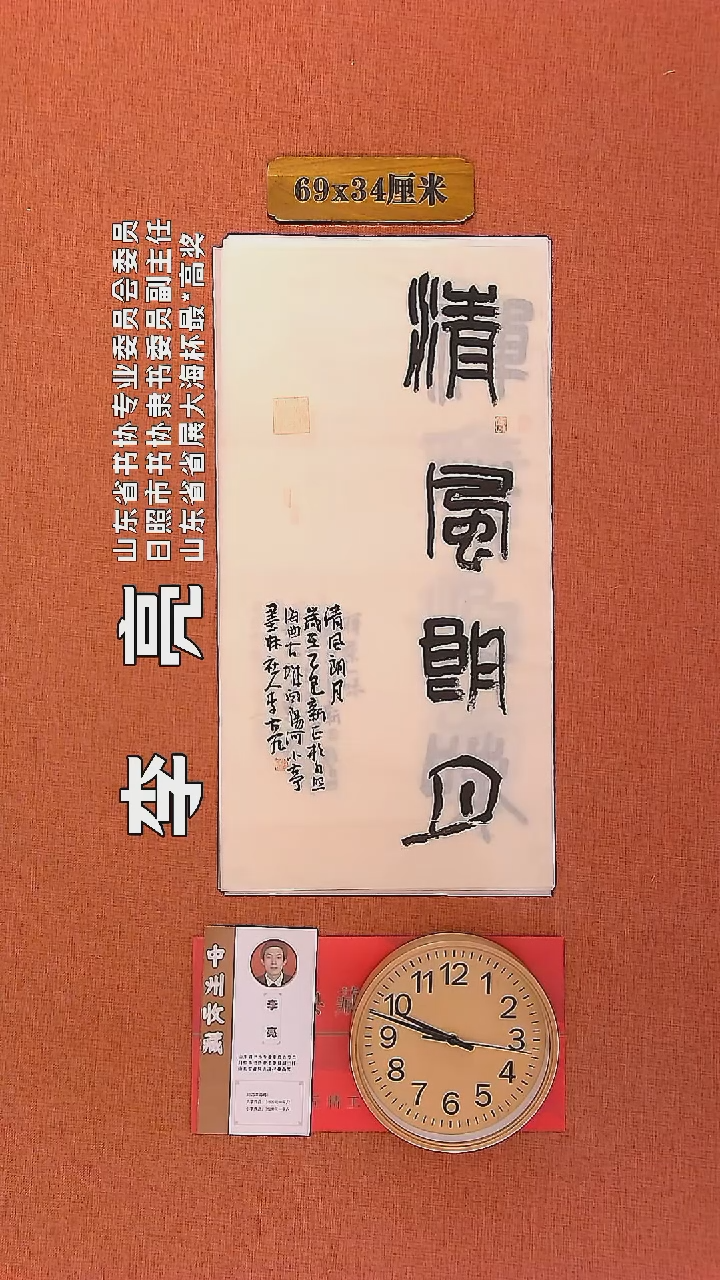 69x34厘米
清风朗月
清风朗月
岁至乙巳新正于日照
海曲古城向阳河小亭
墨林社人李古亮
山东省书协专业委员会委员
日照市书协隶书委员副主任
山东省省展大海杯最*高奖
李 亮
中州收藏
李 亮
12
1
2
3
4
5
6
7
8
9
10
11